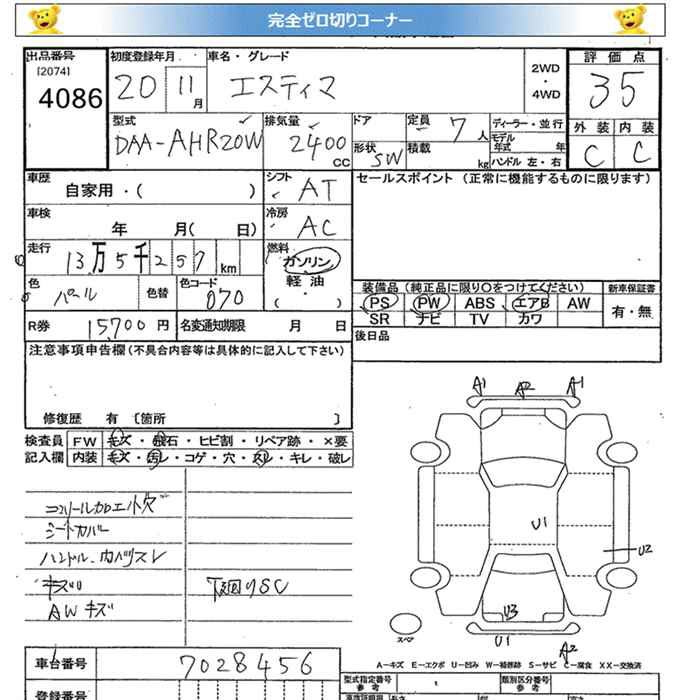 完全ゼロ切りコーナー
出品番号
[2074]
4086
初度登録年月
20 11月
車名・グレード
エスティマ
2WD
・
4WD
評価点
35
外装 内装
C C
型式
DAA-AHR20W
排気量
2400
CC
ドア
形状
SW
定員
7人
積載
kg
ディーラー・並行
モデル
年式 年
ハンドル 左・右
車歴
自家用・( )
シフト
AT
セールスポイント (正常に機能するものに限ります)
車検
年 月( 日)
冷房
AC
走行
13万5千257km
燃料
ガソリン
軽油
( ・ )
色
パール
色替
色コード
070
装備品(純正品に限り○をつけてください)
新車保証書
PS PW ABS エアB AW
SR ナビ TV カワ
有・無
R券
15,700円
名変通知期限
月 日
後日品
注意事項申告欄(不具合内容等は具体的に記入して下さい)
修復歴 有 [箇所 ]
検査員
記入欄
FW キズ・飛石・ヒビ割・リペア跡・×要
内装 キズ・汚レ・コゲ・穴・スレ・キレ・破レ
シートカバー
ハンドル・内ハリスレ
キズ
AWキズ
下廻りSC
A1 A2 A1
U1
U2
U3
U1
A2
スペア
A-キズ E-エクボ U-凹み W-補修跡 S-サビ C-腐食 XX-交換済
車台番号
7028456
型式指定番号
参考
類別区分番号
参考
登録番号